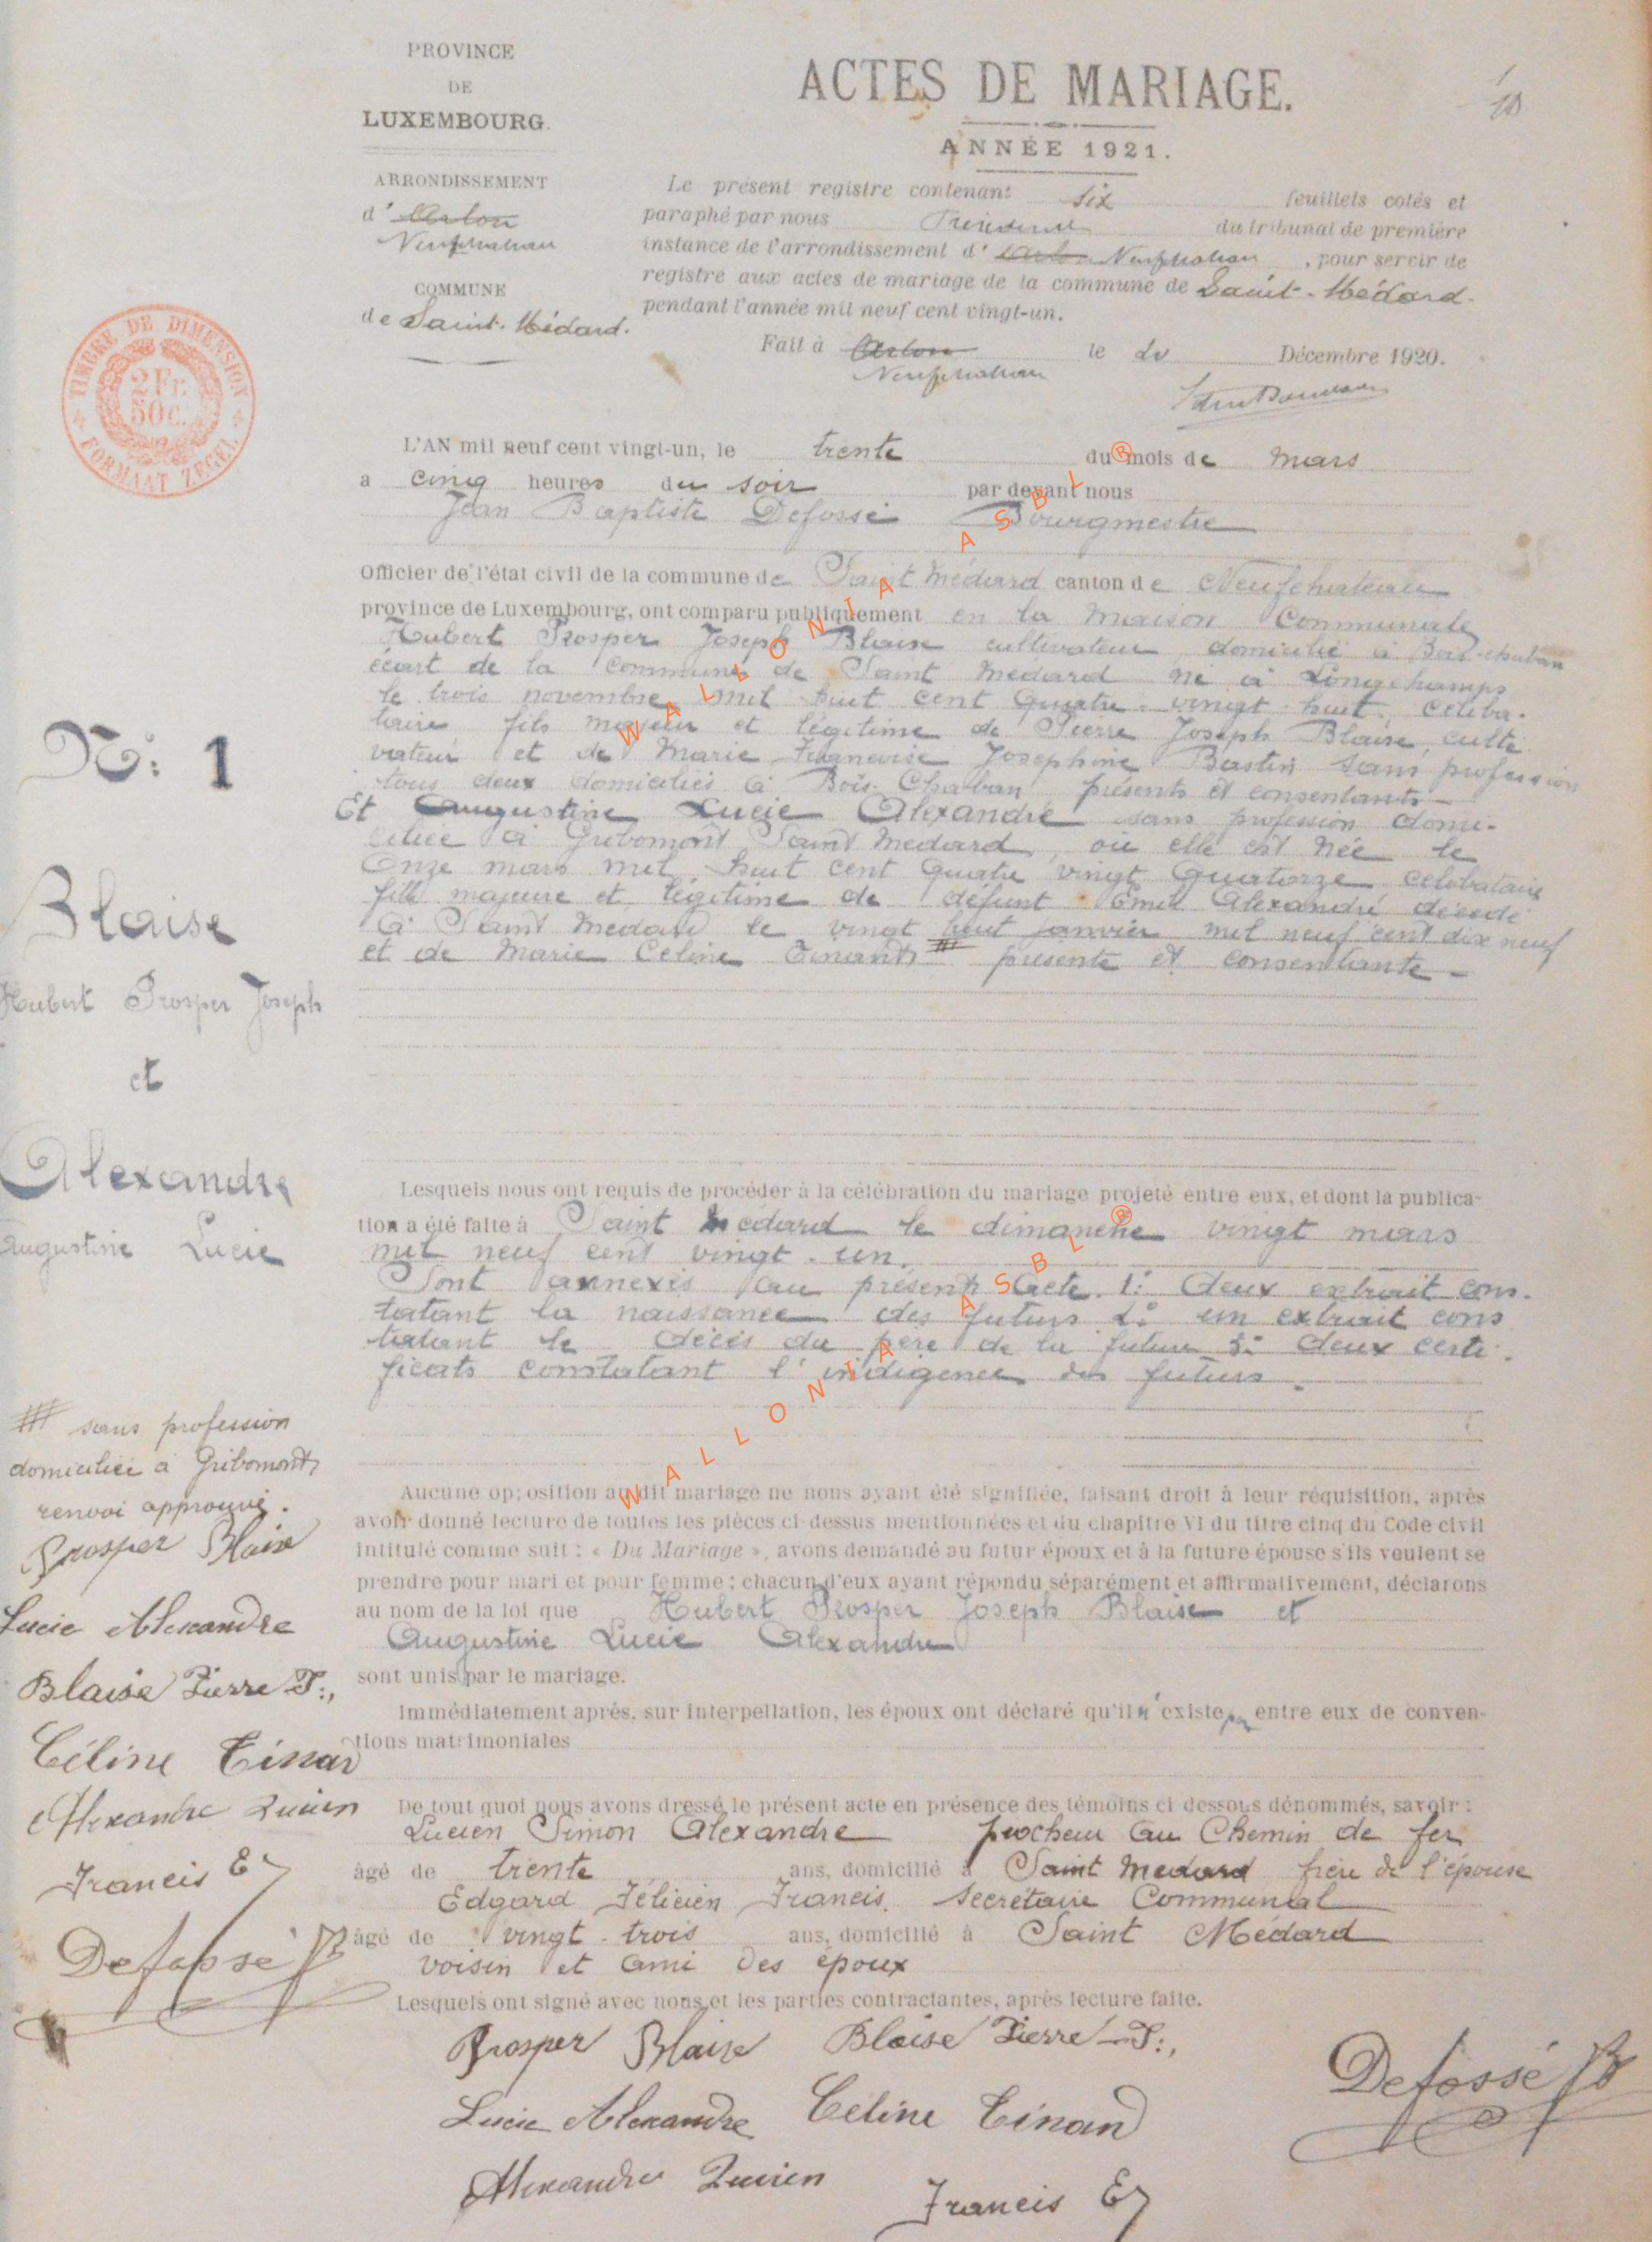 PROVINCE
DE
LUXEMBOURG.
ARRONDISSEMENT
d' Arlon
Neufchateau
COMMUNE
de Saint-Médard.
TIMBRE DE DIMENSION
2 Fr.
50 c.
FORMAAT ZEGEL
ACTES DE MARIAGE.
ANNÉE 1921.
Le présent registre contenant six feuillets cotés et
paraphé par nous Président du tribunal de première
instance de l'arrondissement d' Arlon Neufchateau, pour servir de
registre aux actes de mariage de la commune de Saint-Médard.
pendant l'année mil neuf cent vingt-un.
Fait à Arlon le Décembre 1920.
Neufchateau
L'AN mil neuf cent vingt-un, le trente du mois de mars
a cinq heures du soir par devant nous
Jean Baptiste Defossé Bourgmestre
Officier de l'état civil de la commune de Saint Médard canton de Neufchateau
province de Luxembourg, ont comparu publiquement en la maison Communale
Hubert Prosper Joseph Blaise cultivateur domicilié à Bois-chaban
écart de la commune de Saint Médard né à Longchamps
le trois novembre mil huit cent quatre-vingt-huit, céliba-
taire fils majeur et légitime de Pierre Joseph Blaise, culti
vateur et de Marie Françoise Josephine Bastin sans profession
tous deux domiciliés à Bois-Chaban présents et consentants-
Et Augustine Lucie Alexandre sans profession domi-
ciliée à Gribomont Saint Médard, où elle est née le
Onze mars mil huit cent quatre vingt quatorze célibataire
fille majeure et légitime de défunt Emile Alexandre décédé
à Saint Médard le vingt huit janvier mil neuf cent dix neuf
et de Marie Celine Tinant # présente et consentante-
N°: 1
Blaise
Hubert Prosper Joseph
et
Alexandre
Augustine Lucie
Lesquels nous ont requis de procéder à la célébration du mariage projeté entre eux, et dont la publica-
tion a été faite à Saint Médard le dimanche vingt mars
mil neuf cent vingt-un.
Sont annexés au présent acte. 1° deux extrait cons-
tatant la naissance des futurs 2° un extrait cons
tatant le décès du père de la future 3° deux certi-
ficats constatant l'indigence des futurs.
# sans profession
domiciliée à Gribomont
renvoi approuvé.
Prosper Blaise
Lucie Alexandre
Blaise Pierre-J:,
Céline Tinan
Alexandre Lucien
Francis E
Defossé JB
Aucune opposition au dit mariage ne nous ayant été signifiée, faisant droit à leur réquisition, après
avoir donné lecture de toutes les pièces ci-dessus mentionnées et du chapitre VI du titre cinq du Code civil
intitulé comme suit : « Du Mariage », avons demandé au futur époux et à la future épouse s'ils veulent se
prendre pour mari et pour femme ; chacun d'eux ayant répondu séparément et affirmativement, déclarons
au nom de la loi que Hubert Prosper Joseph Blaise et
Augustine Lucie Alexandre
sont unis par le mariage.
Immédiatement après, sur interpellation, les époux ont déclaré qu'il n'existe pas entre eux de conven-
tions matrimoniales
De tout quoi nous avons dressé le présent acte en présence des témoins ci dessous dénommés, savoir :
Lucien Simon Alexandre piocheur au Chemin de fer
âgé de trente ans, domicilié à Saint Médard frère de l'épouse
Edgard Félicien Francis. Secrétaire Communal
âgé de vingt-trois ans, domicilié à Saint Médard
voisin et ami des époux
Lesquels ont signé avec nous et les parties contractantes, après lecture faite.
Prosper Blaise Blaise Pierre-J:,
Lucie Alexandre Céline Tinan
Alexandre Lucien Francis E
Defossé JB
WALLONIA ASBL ®
WALLONIA ASBL ®